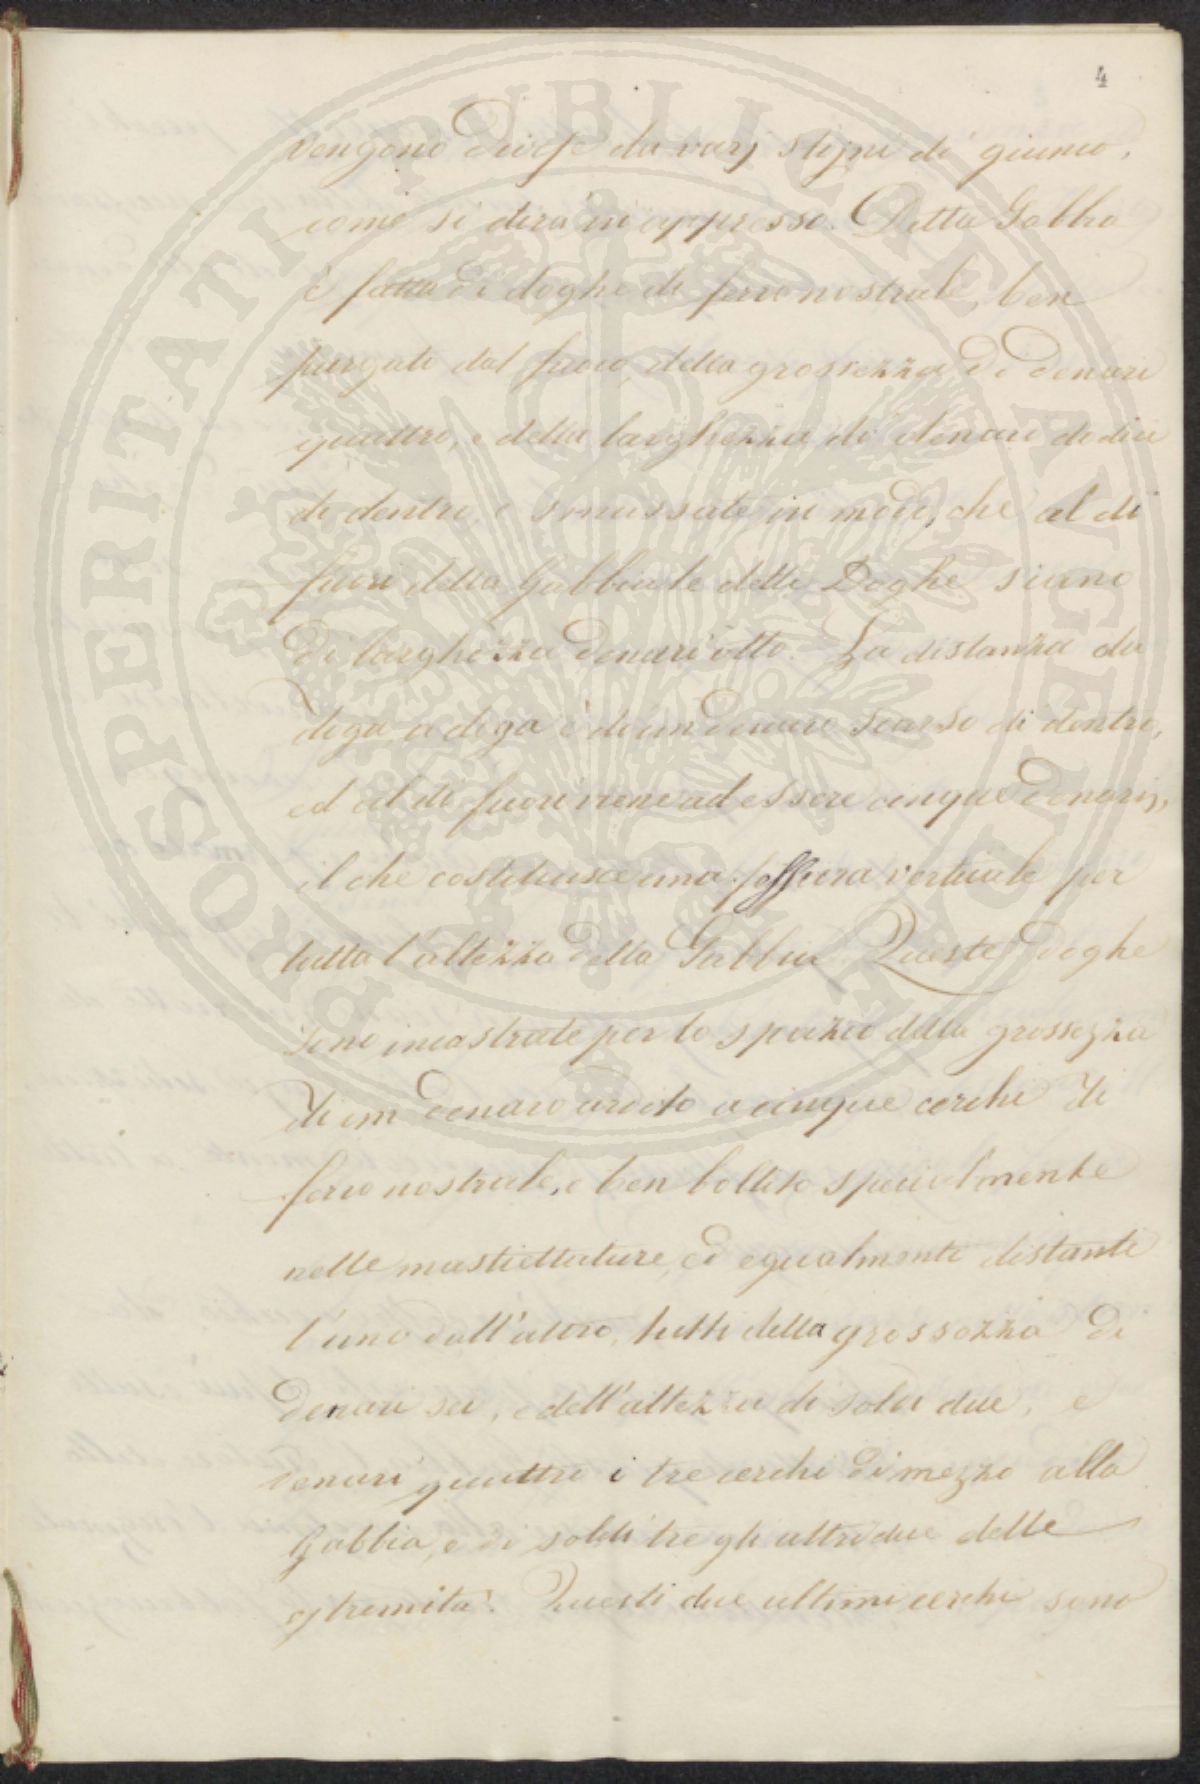 4
vengono divise da varj stojni di giunco,
come si dirà in appresso. Detta Gabbia
è fatta di doghe di ferro nostrale, ben
purgato dal fuoco, della grossezza di denari
quattro, e della larghezza di denari dodici
di dentro, e smussate in modo, che al di
fuori della Gabbia le dette Doghe siano
di larghezza denari otto. La distanza da
doga a doga è di un denaro scarso di dentro,
ed al di fuori viene ad essere cinque denarj,
il che costituisce una fessiera verticale per
tutta l'altezza della Gabbia. Queste doghe
sono incastrate per lo spazio della grossezza
di un denaro ardito a cinque cerchi di
ferro nostrale, e ben bollito specialmente
nelle mastiettature, ed egualmente distanti
l'uno dall'altro, tutti della grossezza di
denari sei, e dell'altezza di soldi due, e
denari quattro i tre cerchi di mezzo alla
Gabbia, e di soldi tre gli altri due delle
estremità. Questi due ultimi cerchi sono
PROSPERITATI PUBLICAE AUGENDAE